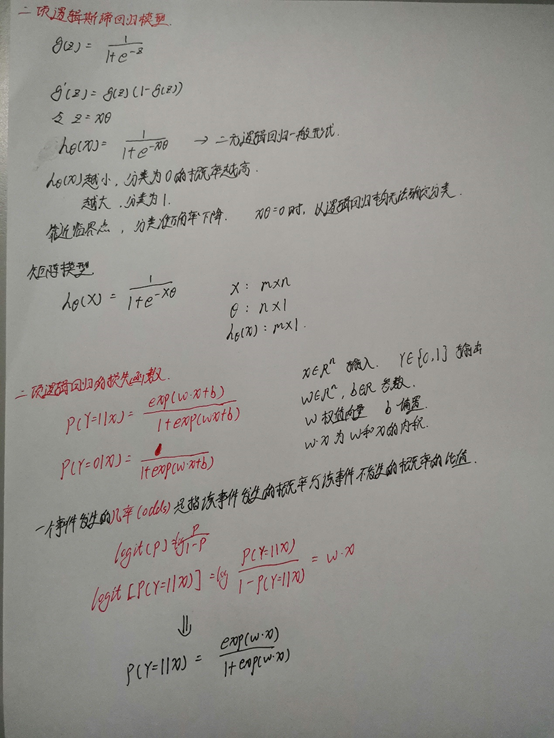 二项逻辑斯谛回归模型.
g(z) = 1/(1+e^{-z})
g'(z) = g(z)(1-g(z))
令 z = xθ
hθ(x) = 1/(1+e^{-xθ}) → 二元逻辑回归一般形式.
hθ(x)越小,分类为0的概率越高.
越大,分类为1.
靠近临界点,分类准确率下降. xθ=0时,从逻辑回归无法确定分类.
矩阵模型
hθ(X) = 1/(1+e^{-Xθ})
X : m×n
θ : n×1
hθ(x) : m×1.
二项逻辑回归的损失函数.
P(Y=1|x) = exp(w·x+b)/(1+exp(wx+b))
P(Y=0|x) = 1/(1+exp(w·x+b))
x∈R^n 输入. Y∈{0,1} 输出
w∈R^n, b∈R 参数.
w 权值向量 b 偏置.
w·x 为 w和x的内积.
一个事件发生的几率(odds)是指该事件发生的概率与该事件不发生的概率的比值.
logit(p) = log p/(1-p)
logit[P(Y=1|x)] = log P(Y=1|x)/(1-P(Y=1|x)) = w·x
⇓
P(Y=1|x) = exp(w·x)/(1+exp(w·x))